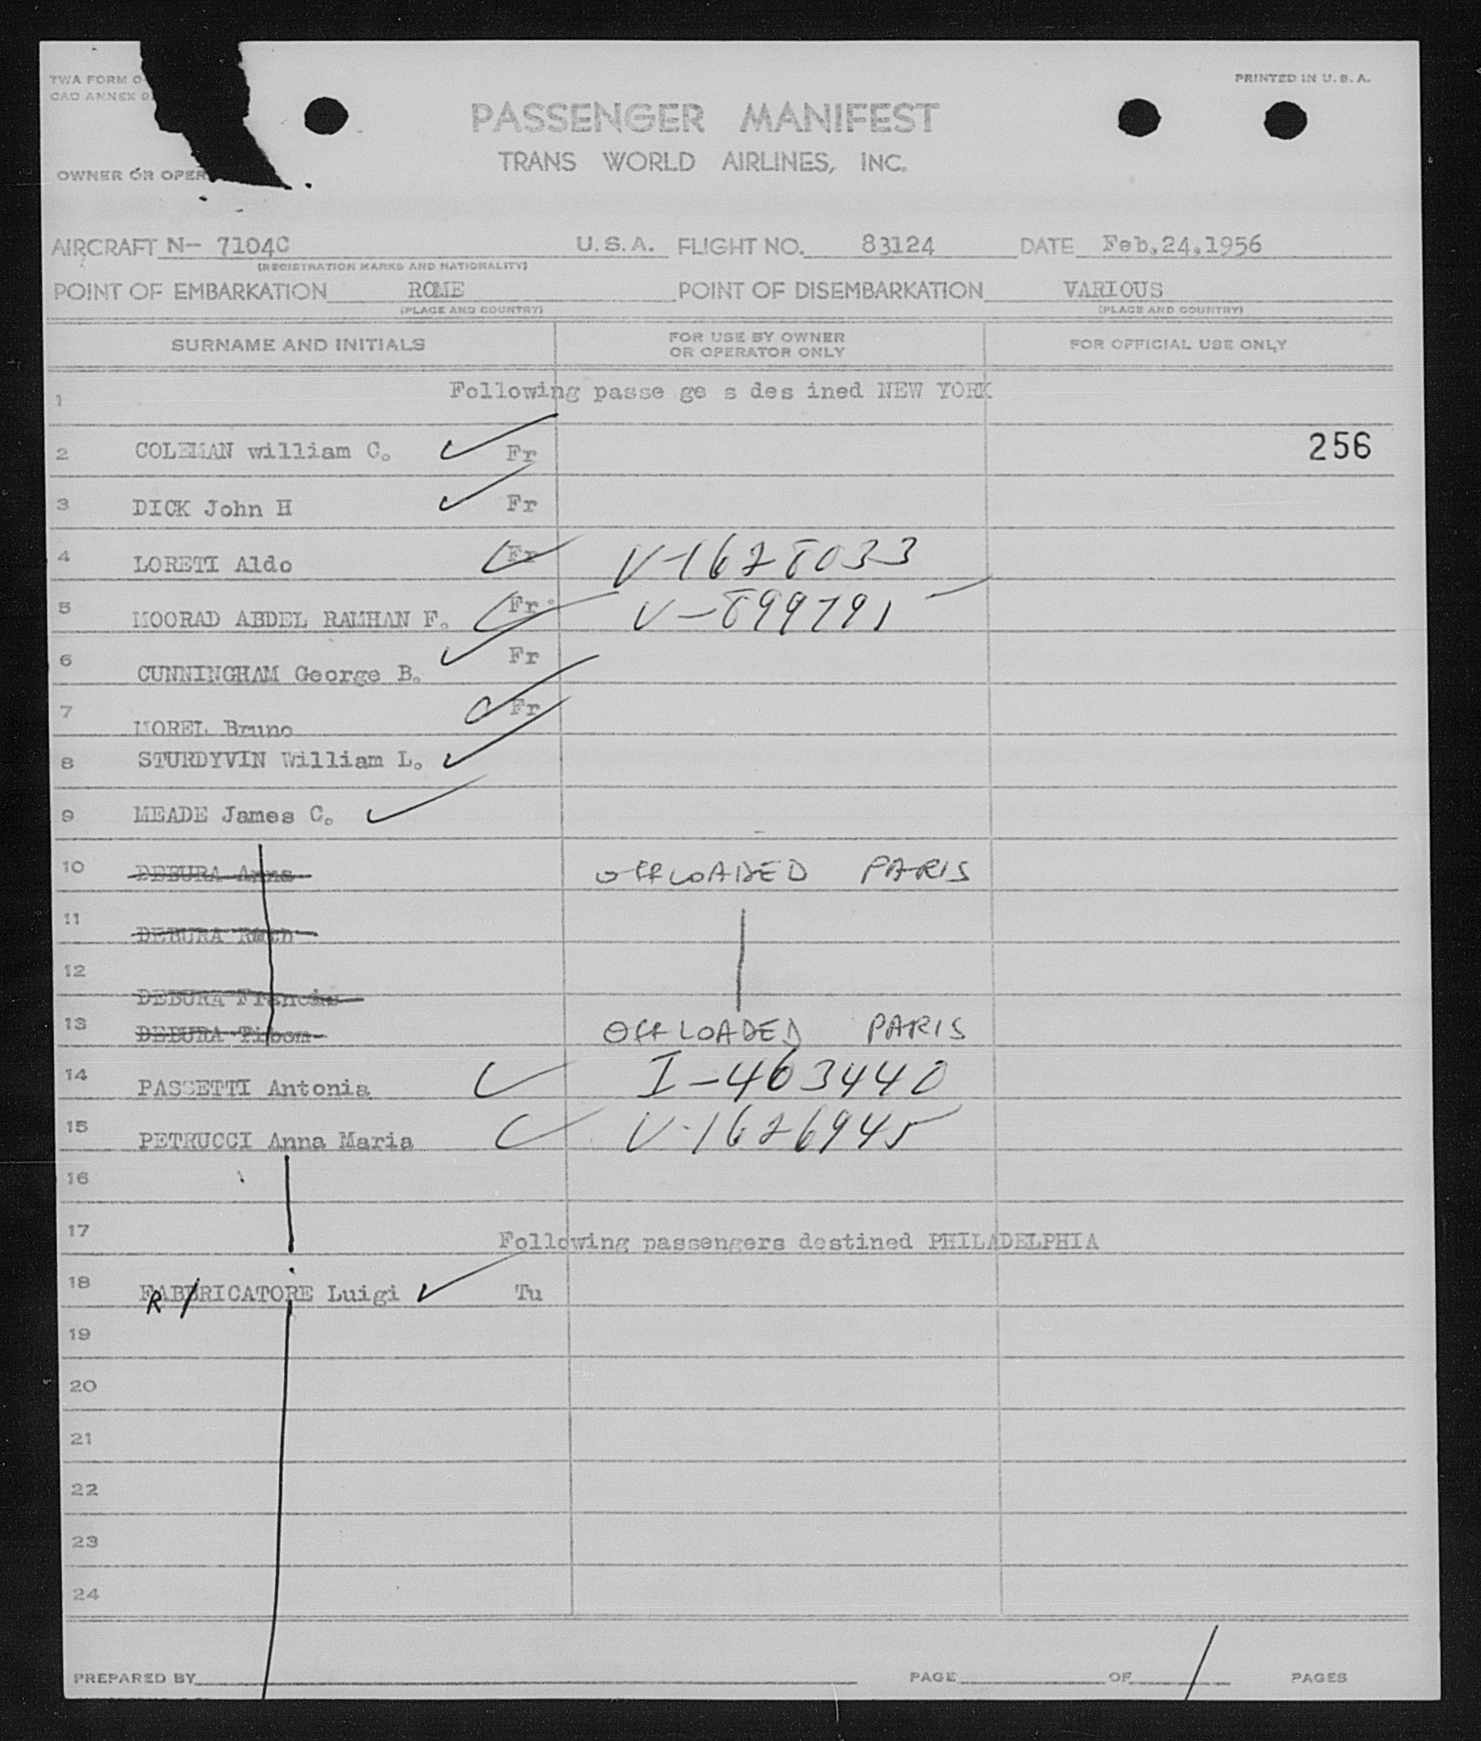 TWA FORM O-
PRINTED IN U.S.A.
CAO ANNEX
PASSENGER MANIFEST
TRANS WORLD AIRLINES, INC.
OWNER OR OPER
AIRCRAFT N- 7104C U.S.A. FLIGHT NO. 83124 DATE Feb.24.1956
(REGISTRATION MARKS AND NATIONALITY)
POINT OF EMBARKATION ROME POINT OF DISEMBARKATION VARIOUS
(PLACE AND COUNTRY) (PLACE AND COUNTRY)
SURNAME AND INITIALS FOR USE BY OWNER OR OPERATOR ONLY FOR OFFICIAL USE ONLY
1 Following passe ge s des ined NEW YORK
2 COLEMAN william C. Fr 256
3 DICK John H Fr
4 LORETI Aldo Fr V-1628033
5 MOORAD ABDEL RAMHAN F. Fr V-899791
6 CUNNINGHAM George B. Fr
7 MOREL Bruno Fr
8 STURDYVIN William L.
9 MEADE James C.
10 DEBURA Anna OFFLOADED PARIS
11 DEBURA
12 DEBURA Francis
13 DEBURA Tibom OFFLOADED PARIS
14 PASSETTI Antonia I-463440
15 PETRUCCI Anna Maria V-1626945
16
17 Following passengers destined PHILADELPHIA
18 FABBRICATORE Luigi Tu
R /
19
20
21
22
23
24
PREPARED BY PAGE OF PAGES